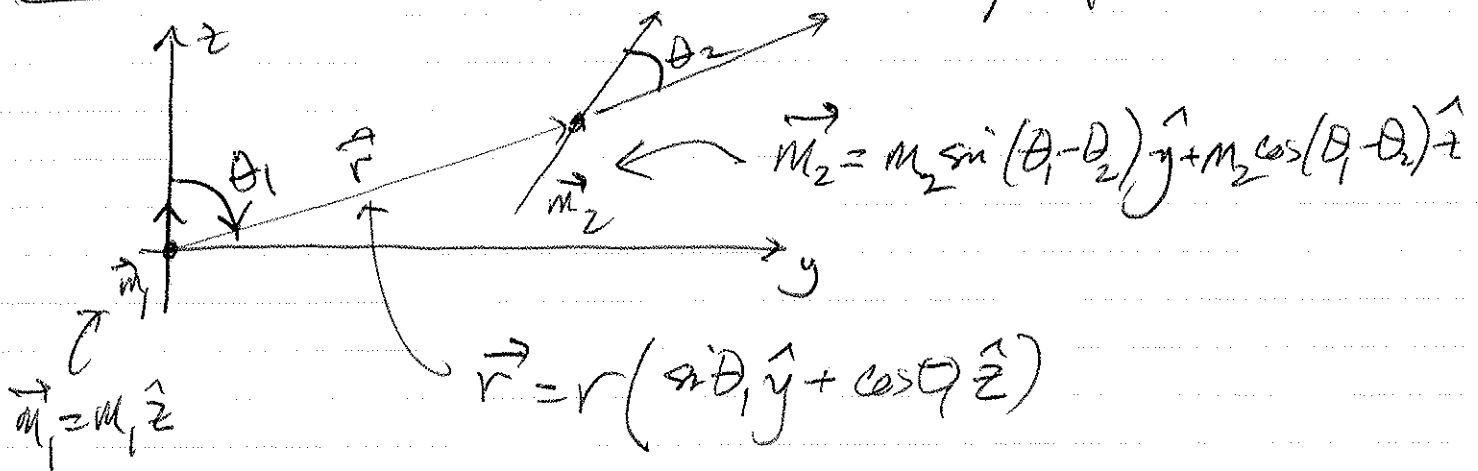 z
θ₂
θ₁
r⃗
m⃗₂
m⃗₂ = m₂ sin(θ₁-θ₂)ŷ + m₂ cos(θ₁-θ₂)ẑ
m⃗₁
y
m⃗₁ = m₁ẑ
r⃗ = r(sinθ₁ŷ + cosθ₁ẑ)